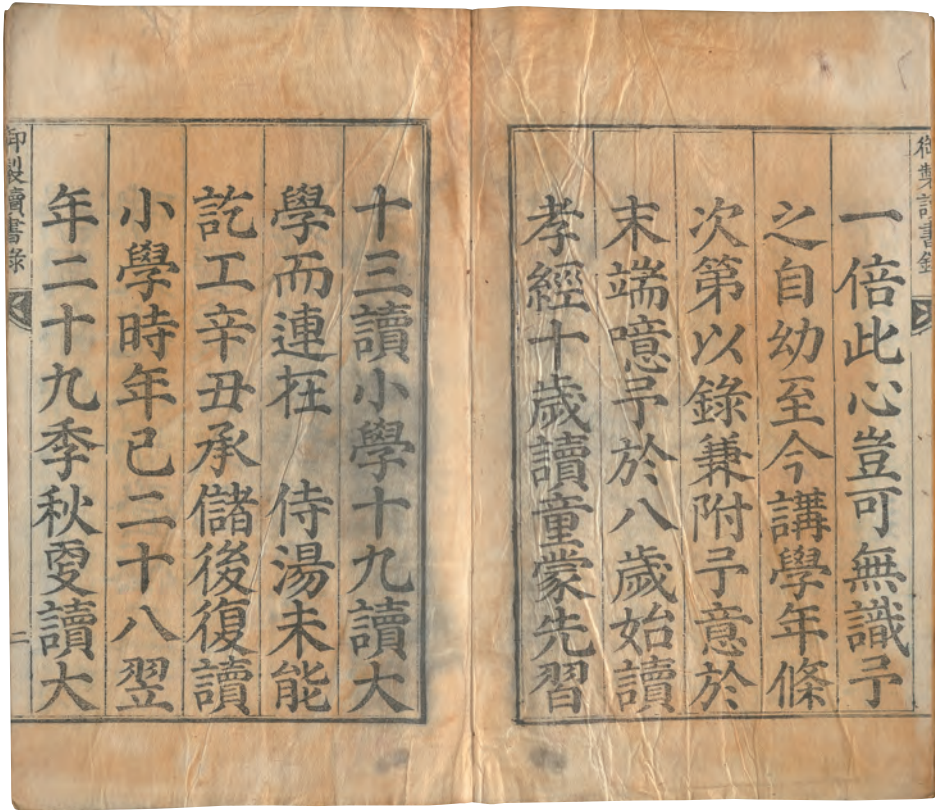 御製讀書錄
一倍此心豈可無識予
之自幼至今講學年條
次第以錄兼附予意於
末端噫予於八歲始讀
孝經十歲讀童蒙先習
十三讀小學十九讀大
學而連在 侍湯未能
訖工辛丑承儲後復讀
小學時年已二十八翌
年二十九季秋更讀大
御製讀書錄
二